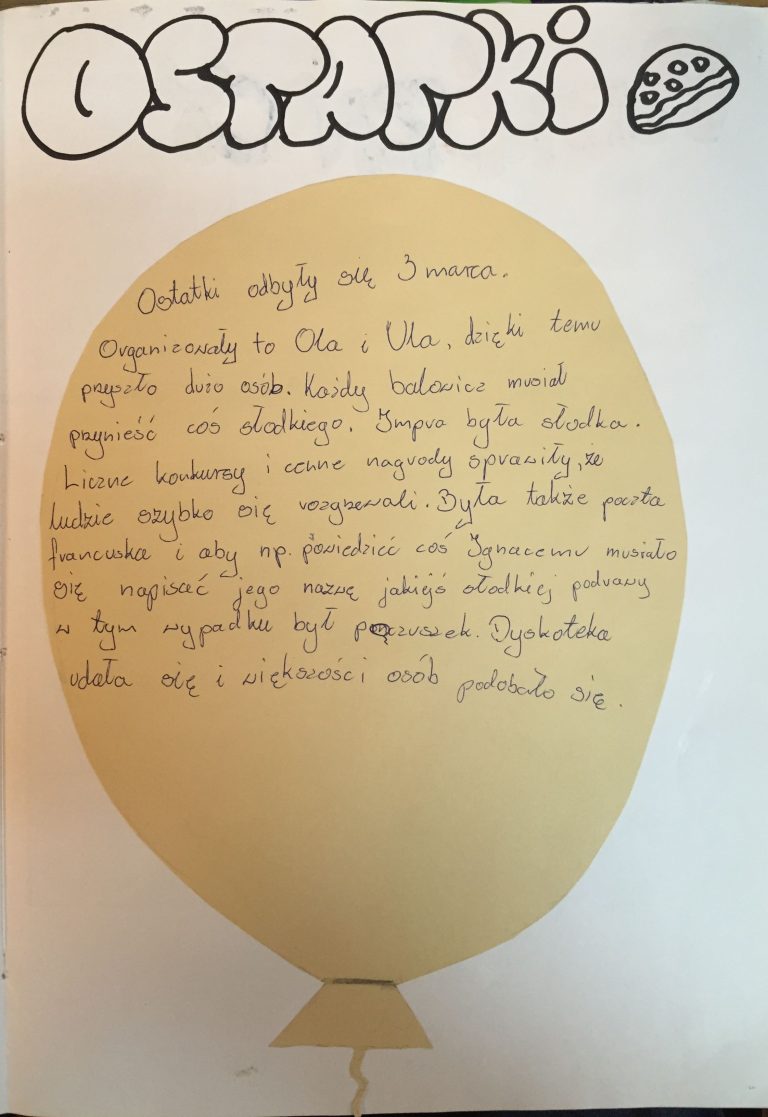 OSTATKI
Ostatki odbyły się 3 marca.
Organizowały to Ola i Ula, dzięki temu
przyszło dużo osób. Każdy balowicz musiał
przynieść coś słodkiego. Impra była słodka.
Liczne konkursy i cenne nagrody sprawiły, że
ludzie szybko się rozgrzewali. Była także poczta
francuska i aby np. powiedzieć coś Ignacemu musiało
się napisać jego nazwę jakiejś słodkiej podrawy
w tym wypadku był pączuszek. Dyskoteka
udała się i większości osób podobało się.